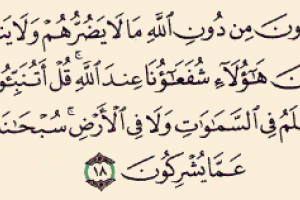 ونَ مِن دُونِ ٱللَّهِ مَا لَا يَضُرُّهُمْ وَلَا يَنـ
ـنَ هَـٰٓؤُلَآءِ شُفَعَـٰٓؤُنَا عِندَ ٱللَّهِ ۚ قُلْ أَتُنَبِّـُٔو
ـلَمُ فِى ٱلسَّمَـٰوَٰتِ وَلَا فِى ٱلْأَرْضِ ۚ سُبْحَـٰنَـ
عَمَّا يُشْرِكُونَ ١٨